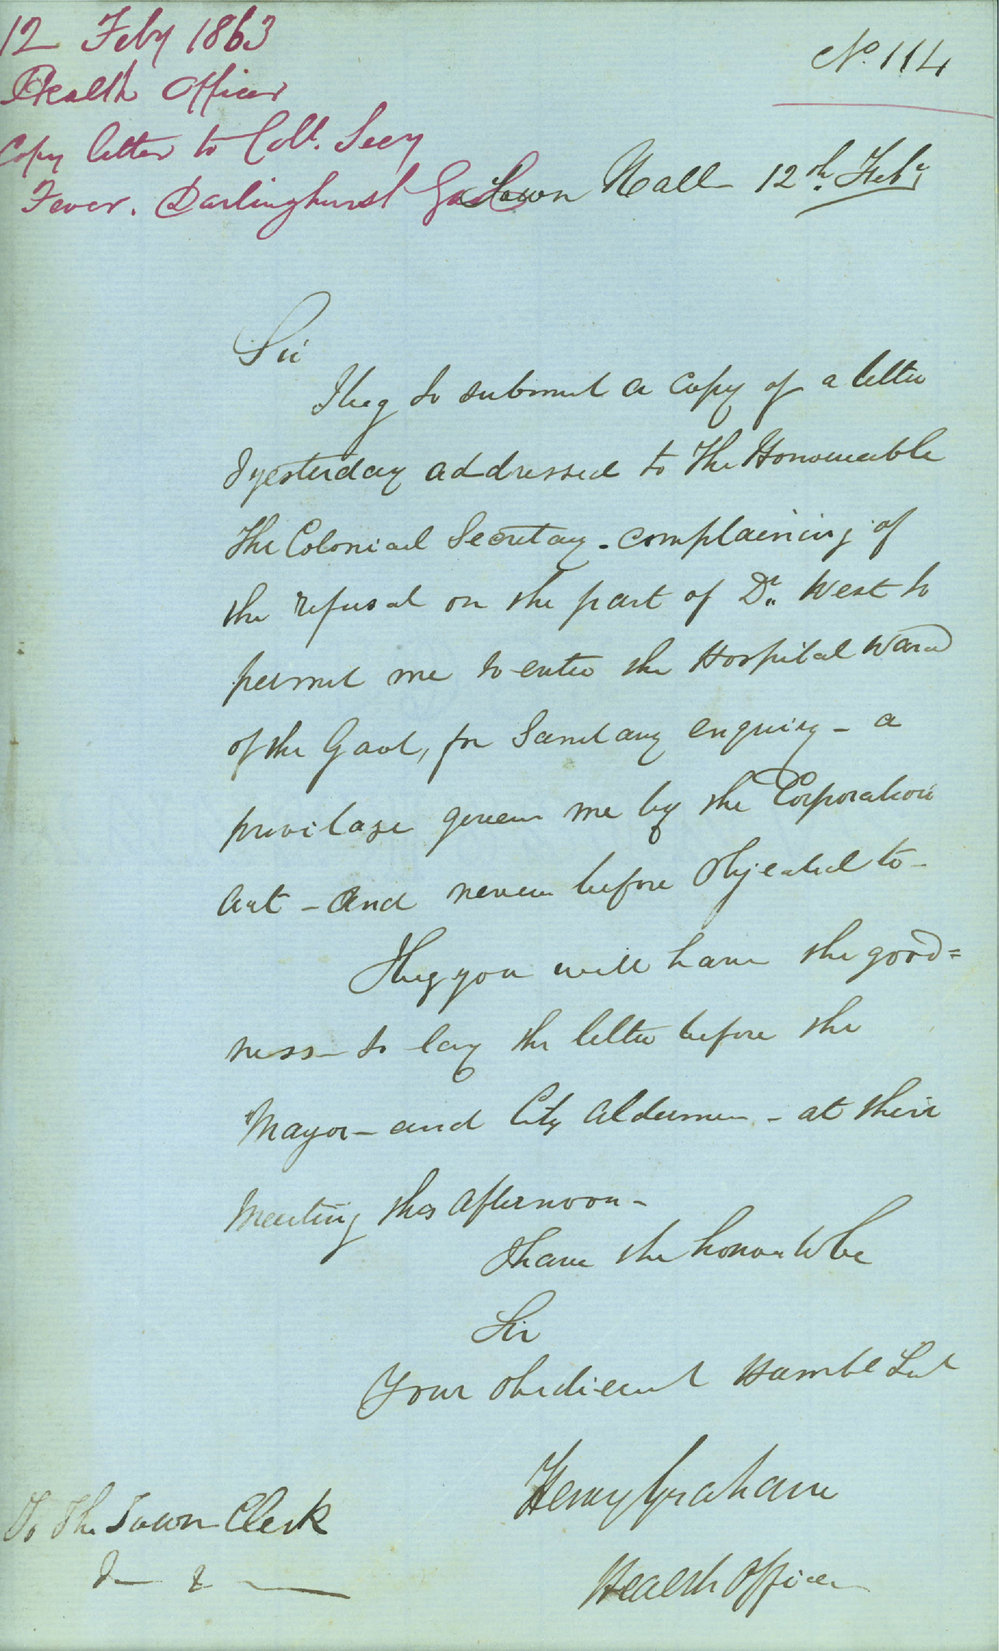 12 Feby 1863
Health Officer
Copy letter to Coll. Secy
Fever. Darlinghurst Gaol
No. 114
Town Hall 12th. Feby
Sir
I beg to submit a copy of a letter
I yesterday addressed to The Honourable
The Colonial Secretary - complaining of
the refusal on the part of Dr. West to
permit me to enter the Hospital Ward
of the Gaol, for Sanitary enquiry - a
privilage given me by the Corporation
Act - and never before objected to -
I beg you will have the good=
ness - to lay the letter before the
Mayor - and City Aldermen - at their
Meeting this afternoon -
I have the honor to be
Sir
Your obedient Humble Svt
Henry Graham
Health Officer
To The Town Clerk